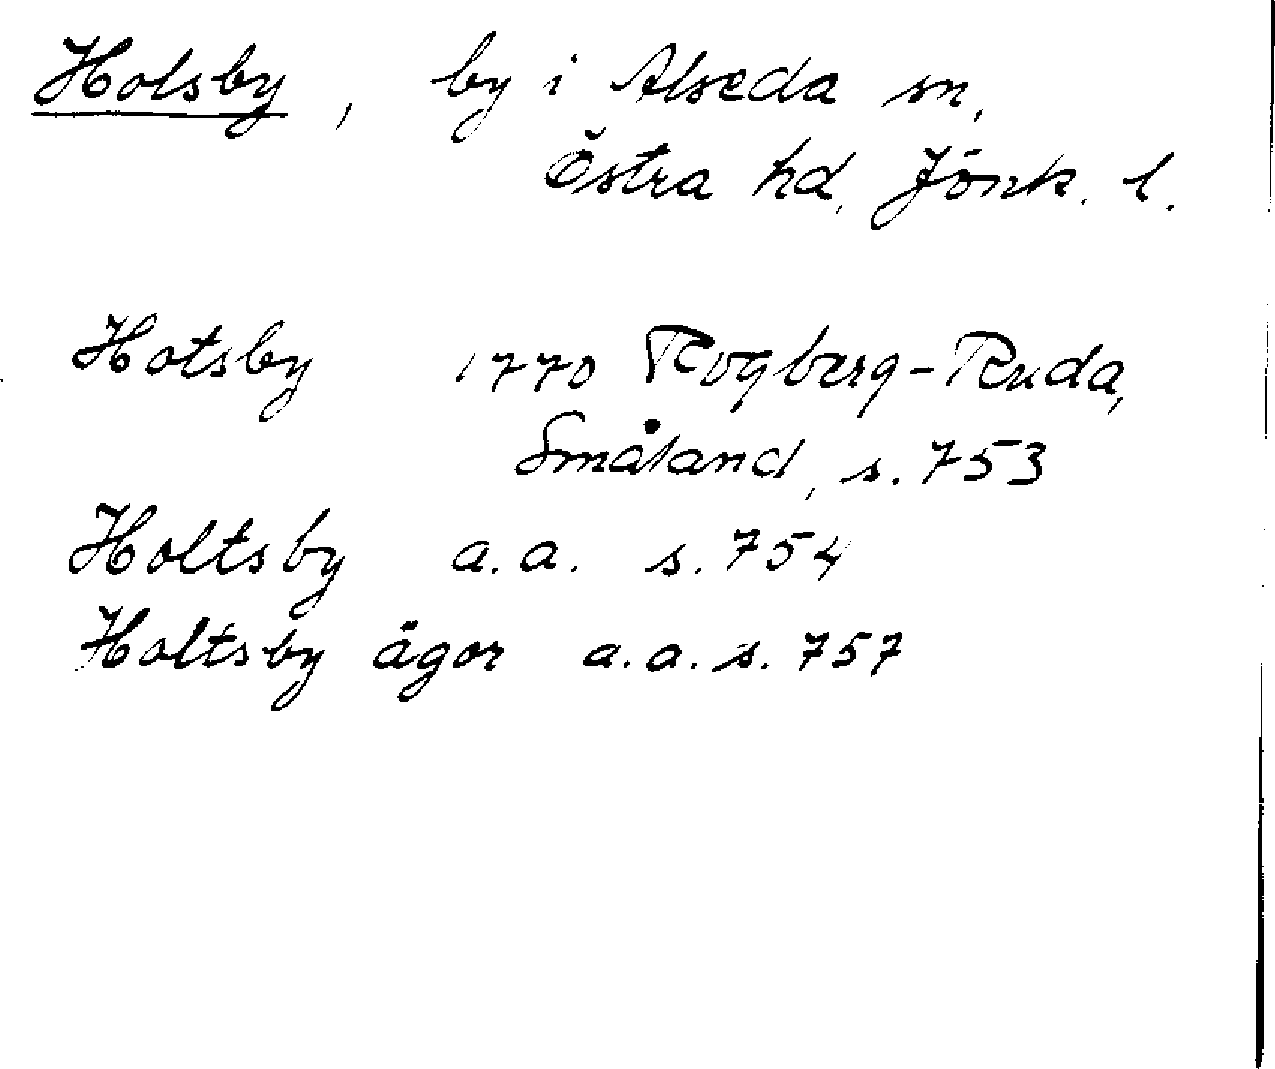 Holsby, by i Alseda sn,
Östra hd, Jönk. l.
Hotsby 1770 Rogberg-Ruda,
Småland, s. 753
Holtsby a.a. s. 754
Holtsby ägor a.a. s. 757